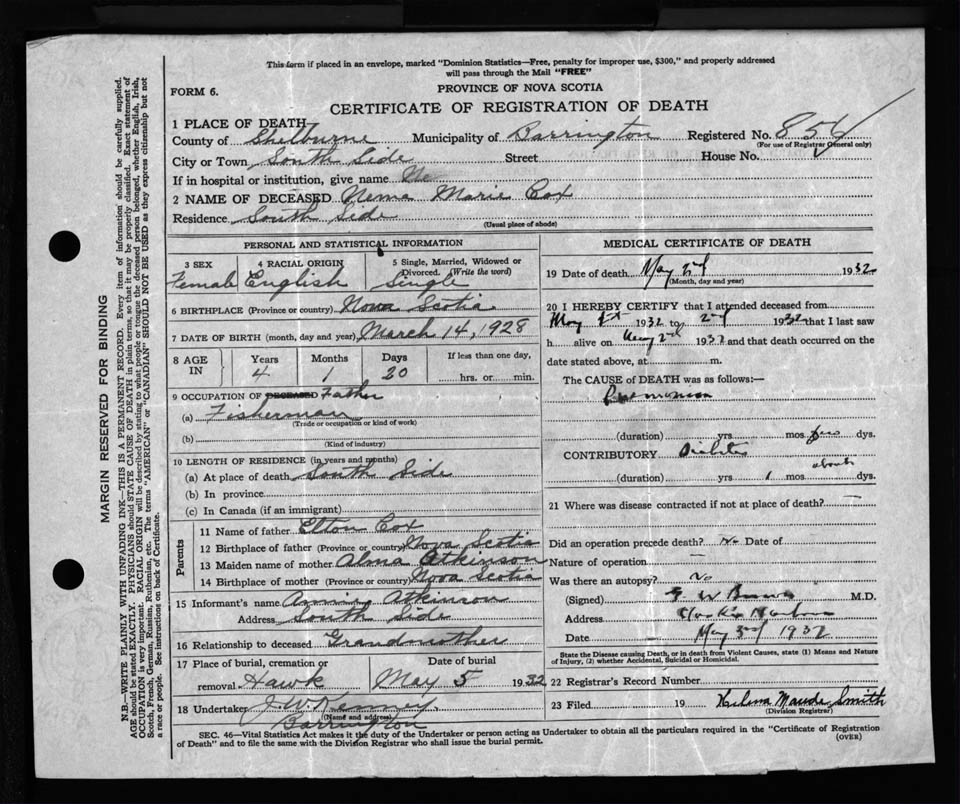 This form if placed in an envelope, marked "Dominion Statistics—Free, penalty for improper use, $300," and properly addressed
will pass through the Mail "FREE"
FORM 6.
PROVINCE OF NOVA SCOTIA
CERTIFICATE OF REGISTRATION OF DEATH
1 PLACE OF DEATH
County of Shelburne Municipality of Barrington Registered No. 856
(For use of Registrar General only)
City or Town South Side Street House No.
If in hospital or institution, give name No
2 NAME OF DECEASED Nema Marie Cox
Residence South Side
(Usual place of abode)
PERSONAL AND STATISTICAL INFORMATION
3 SEX 4 RACIAL ORIGIN 5 Single, Married, Widowed or
Divorced. (Write the word)
Female English Single
6 BIRTHPLACE (Province or country) Nova Scotia
7 DATE OF BIRTH (month, day and year) March 14, 1928
8 AGE IN Years Months Days If less than one day,
4 1 20 hrs. or min.
9 OCCUPATION OF DECEASED Father
(a) Fisherman
(Trade or occupation or kind of work)
(b)
(Kind of industry)
10 LENGTH OF RESIDENCE (in years and months)
(a) At place of death South Side
(b) In province
(c) In Canada (if an immigrant)
Parents
11 Name of father Elton Cox
12 Birthplace of father (Province or country) Nova Scotia
13 Maiden name of mother Alma Atkinson
14 Birthplace of mother (Province or country) Nova Scotia
15 Informant's name Annie Atkinson
Address South Side
16 Relationship to deceased Grandmother
17 Place of burial, cremation or Date of burial
removal Hawk May 5 1932
18 Undertaker J. W. Kenney
(Name and address)
Barrington
MEDICAL CERTIFICATE OF DEATH
19 Date of death May 2nd 1932
(Month, day and year)
20 I HEREBY CERTIFY that I attended deceased from
May 1st 1932 to 2nd 1932 that I last saw
h alive on May 2nd 1932 and that death occurred on the
date stated above, at m.
The CAUSE of DEATH was as follows:—
Pneumonia
(duration) yrs. mos. few dys.
CONTRIBUTORY Diabetes
about
(duration) yrs. 1 mos. dys.
21 Where was disease contracted if not at place of death? —
Did an operation precede death? No Date of
Nature of operation —
Was there an autopsy? No
(Signed) M.D.
Address Clark's Harbour
Date May 3rd 1932
State the Disease causing Death, or in death from Violent Causes, state (1) Means and Nature
of Injury, (2) whether Accidental, Suicidal or Homicidal.
22 Registrar's Record Number
23 Filed 19 Maude Smith
(Division Registrar)
SEC. 46—Vital Statistics Act makes it the duty of the Undertaker or person acting as Undertaker to obtain all the particulars required in the "Certificate of Registration
of Death" and to file the same with the Division Registrar who shall issue the burial permit.
(OVER)
MARGIN RESERVED FOR BINDING
N.B.—WRITE PLAINLY WITH UNFADING INK—THIS IS A PERMANENT RECORD. Every item of information should be carefully supplied.
AGE should be stated EXACTLY. PHYSICIANS should STATE CAUSE OF DEATH in plain terms, so that it may be properly classified. Exact statement of
OCCUPATION is very important. RACIAL ORIGIN will be described by stating to what people or tongue the deceased person belonged, whether English, Irish,
Scotch, French, German, Russian, Ruthenian, etc. The terms "AMERICAN" or "CANADIAN" SHOULD NOT BE USED as they express citizenship but not
a race or people. See instructions on back of Certificate.